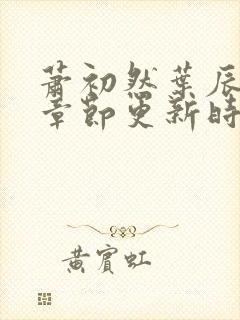 蕭初然葉辰
章節更新時
黃賓虹